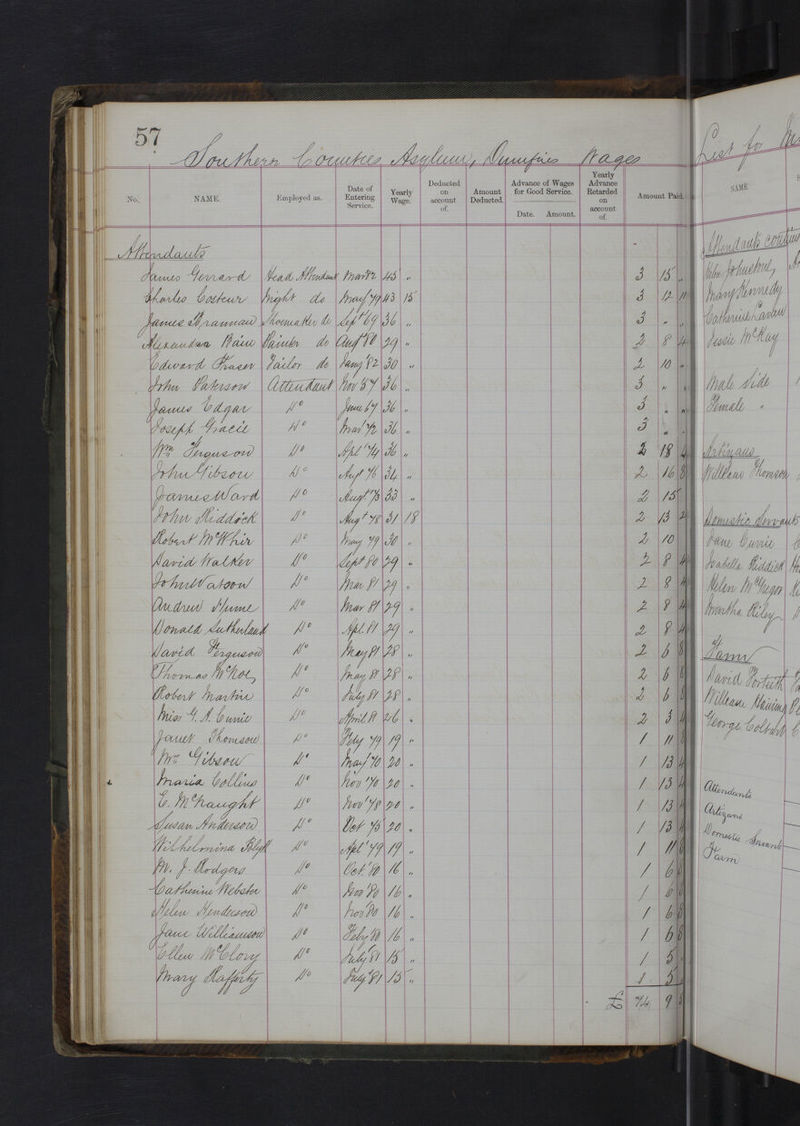 57
Southern Counties Asylum, Dumfries Wages
No. NAME. Employed as. Date of Entering Service. Yearly Wage. Deducted on account of. Amount Deducted. Advance of Wages for Good Service. Date. Amount. Yearly Advance Retarded on account of. Amount Paid.
Attendants
James Gerrard Head Attendant Mar 72 45 " 3 15 "
Charles Costeur Night do May 79 43 15 3 12 11
James Brannan Shoemaker do Sept 69 36 " 3 " "
Alexander Bain Painter do Augt 80 29 " 2 8 4
Edward Fraser Tailor do Jany 82 30 " 2 10 "
John Paterson Attendant Nov 57 36 " 3 " "
James Edgar Do June 67 36 " 3 " "
Joseph Gracie Do Mar 72 36 " 3 " "
Wm Ferguson Do Apl 74 36 " 2 18 4
John Gibson Do Augt 76 34 " 2 16 8
James Ward Do Augt 78 33 " 2 15
John Riddick Do Augt 78 31 18 2 13 2
Robert McWhir Do May 79 30 " 2 10
David Walker Do Sept 80 29 " 2 8 4
John Watson Do Mar 81 29 " 2 8 4
Andrew Hume Do Mar 81 29 " 2 8 4
Donald Sutherland Do Apl 81 29 " 2 8 4
David Ferguson Do May 81 28 " 2 6 8
Thomas McKoe Do May 81 28 " 2 6 8
Robert Martin Do July 81 28 " 2 6 8
Miss G. A. Currie Do April 81 26 " 2 3 4
Janet Thomson Do Feby 79 19 " 1 11 8
Mrs Gibson Do May 70 20 " 1 13 4
Maria Collins Do Nov 70 20 " 1 13 4
E. McNaught Do Nov 78 20 " 1 13 4
Susan Anderson Do Oct 75 20 " 1 13 4
Wilhelmina Do Apl 79 19 " 1 11 8
M. J. Rodgers Do Oct 80 16 " 1 6 8
Catherine Webster Do Nov 80 16 " 1 6 8
Helen Henderson Do Nov 80 16 " 1 6 8
Jane Williamson Do Feby 80 16 " 1 6 8
Ellen McClory Do July 81 15 " 1 5
Mary Rafferty Do July 81 15 " 1 5
£ 74 9 5
List for
NAME
Attendants
John Johnstone
Mary Kennedy
Catherine
Jessie McKay
Male Side
Female "
Artizans
William Thomson
Domestic Servants
Jane Currie
Isabella Riddick
Helen McGregor
Martha Riley
Farm
David Porteith
William
George Coltart
Attendants
Artizans
Domestic Servants
Farm